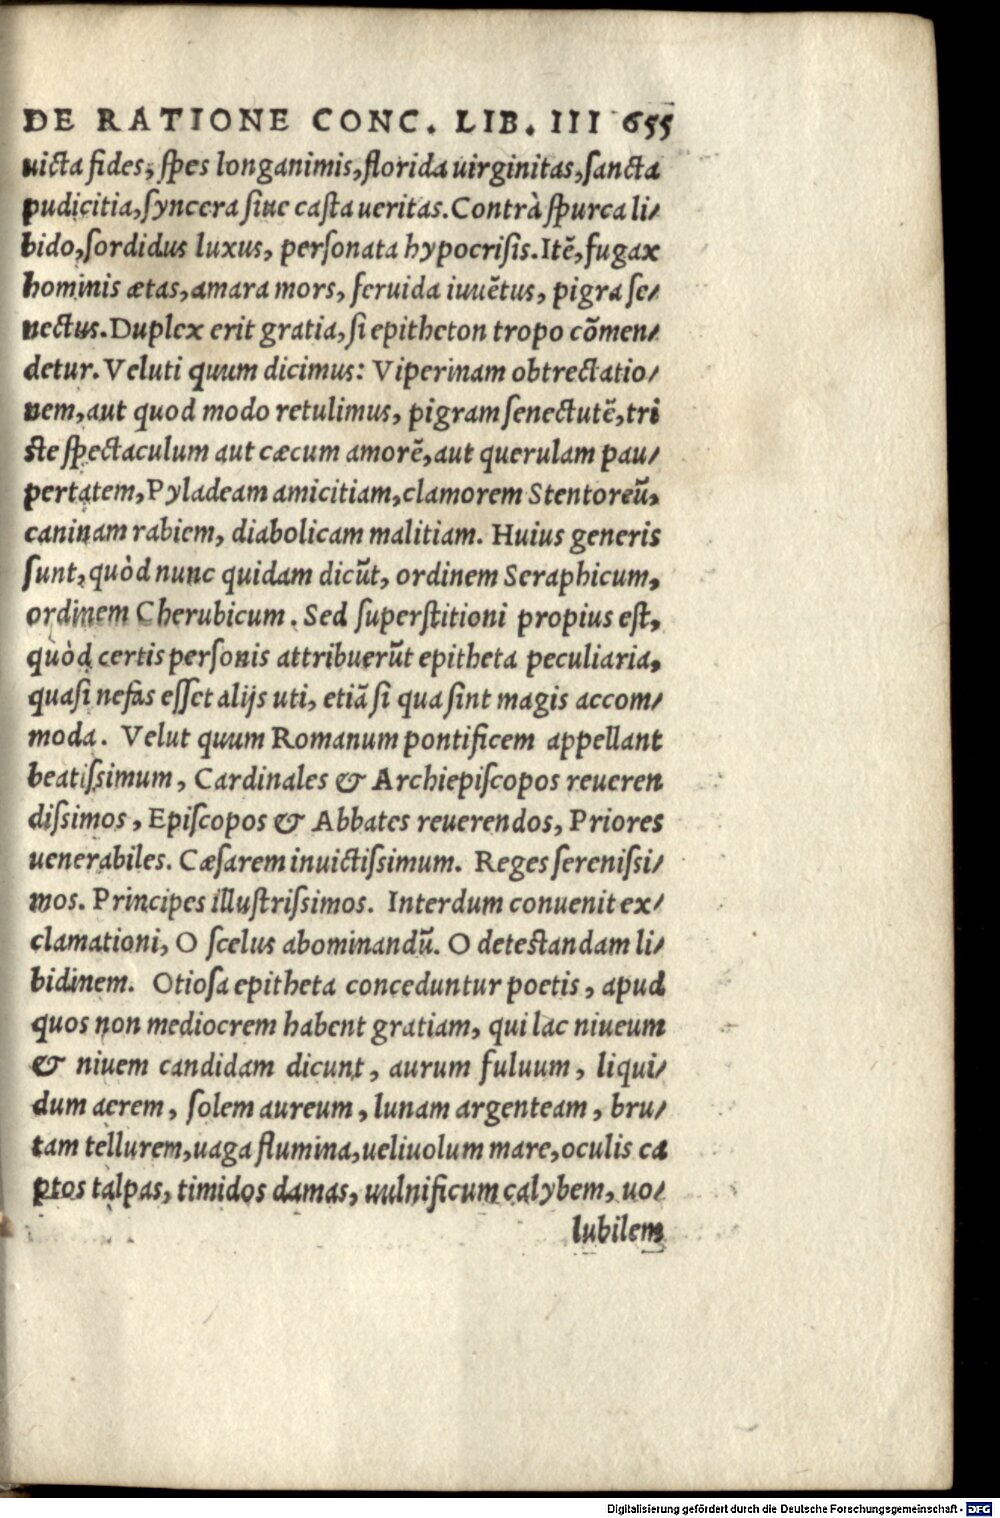 DE RATIONE CONC. LIB. III 655
uicta fides, ſpes longanimis, florida uirginitas, ſancta
pudicitia, ſyncera ſiue caſta ueritas. Contrà ſpurca li/
bido, ſordidus luxus, perſonata hypocriſis. Itē, fugax
hominis ætas, amara mors, feruida iuuētus, pigra ſe/
nectus. Duplex erit gratia, ſi epitheton tropo cōmen/
detur. Veluti quum dicimus: Viperinam obtrectatio/
nem, aut quod modo retulimus, pigram ſenectutē, tri
ſte ſpectaculum aut cæcum amorē, aut querulam pau/
pertatem, Pyladeam amicitiam, clamorem Stentoreū,
caninam rabiem, diabolicam malitiam. Huius generis
ſunt, quòd nunc quidam dicūt, ordinem Seraphicum,
ordinem Cherubicum. Sed ſuperſtitioni propius eſt,
quòd certis perſonis attribuerūt epitheta peculiaria,
quaſi nefas eſſet alijs uti, etiā ſi qua ſint magis accom/
moda. Velut quum Romanum pontificem appellant
beatiſsimum, Cardinales & Archiepiſcopos reueren
diſsimos, Epiſcopos & Abbates reuerendos, Priores
uenerabiles. Cæſarem inuictiſsimum. Reges ſereniſsi/
mos. Principes illuſtriſsimos. Interdum conuenit ex/
clamationi, O ſcelus abominandū. O deteſtandam li/
bidinem. Otioſa epitheta conceduntur poetis, apud
quos non mediocrem habent gratiam, qui lac niueum
& niuem candidam dicunt, aurum fuluum, liqui/
dum aerem, ſolem aureum, lunam argenteam, bru/
tam tellurem, uaga flumina, ueliuolum mare, oculis ca
ptos talpas, timidos damas, uulnificum calybem, uo/
lubilem
Digitalisierung gefördert durch die Deutsche Forschungsgemeinschaft - DFG